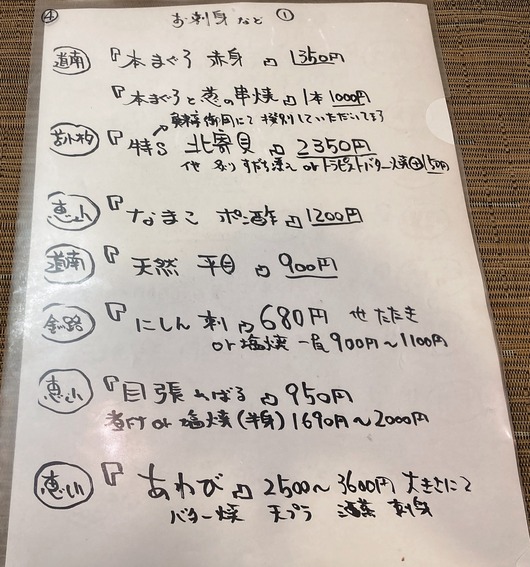 ④ お刺身 など ①
道南 『本まぐろ 赤身』 1350円
『本まぐろと葱の串焼』 1本1000円
にて 特別していただいてます
苫小牧 『特S 北寄貝』 2350円
すだち添え or トラピストバター焼 ⊕150円
恵山 『なまこ ポン酢』 1200円
道南 『天然 平目』 900円
釧路 『にしん 刺』 680円 たたき
or 塩焼 一尾 900円〜1100円
恵山 『目張 めばる』 950円
煮付 or 塩焼(半身) 1690円〜2000円
恵山 『あわび』 2500〜3600円 大きさにて
バター焼 天プラ 酒蒸 刺身